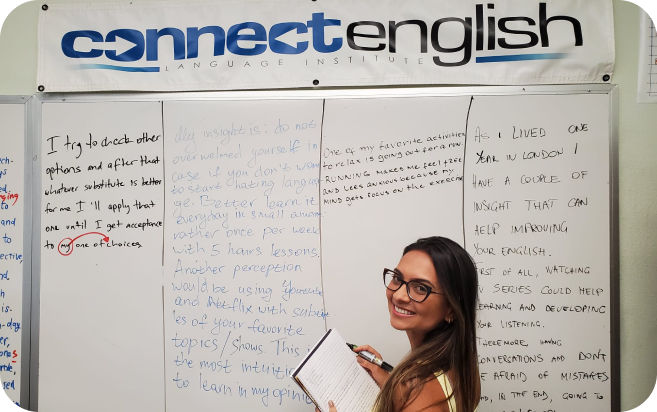 connectenglish
LANGUAGE INSTITUTE
I try to check other
options and after that
whatever substitute is better
for me I'll apply that
one until I get acceptance
to my one of choices.
My insight is: do not
overwelmed yourself in
case if you don't want
to start hating langua
ge. Better learn it
everyday in small amount
rather once per week
with 5 hours lessons.
Another perception
would be using Youtube
and Netflix with subtit
les of your favorite
topics/shows. This is
the most intuitive
to learn in my opinion
One of my favorite activities
to relax is going out for a run.
RUNNING makes me feel free
and less anxious because my
mind gets focus on the exercise
AS I LIVED ONE
YEAR IN LONDON I
HAVE A COUPLE OF
INSIGHT THAT CAN
HELP IMPROVING
YOUR ENGLISH.
FIRST OF ALL, WATCHING
SERIES COULD HELP
LEARNING AND DEVELOPING
YOUR LISTENING.
HAVING
CONVERSATIONS AND DON'T
BE AFRAID OF MISTAKES
IN THE END, GOING TO